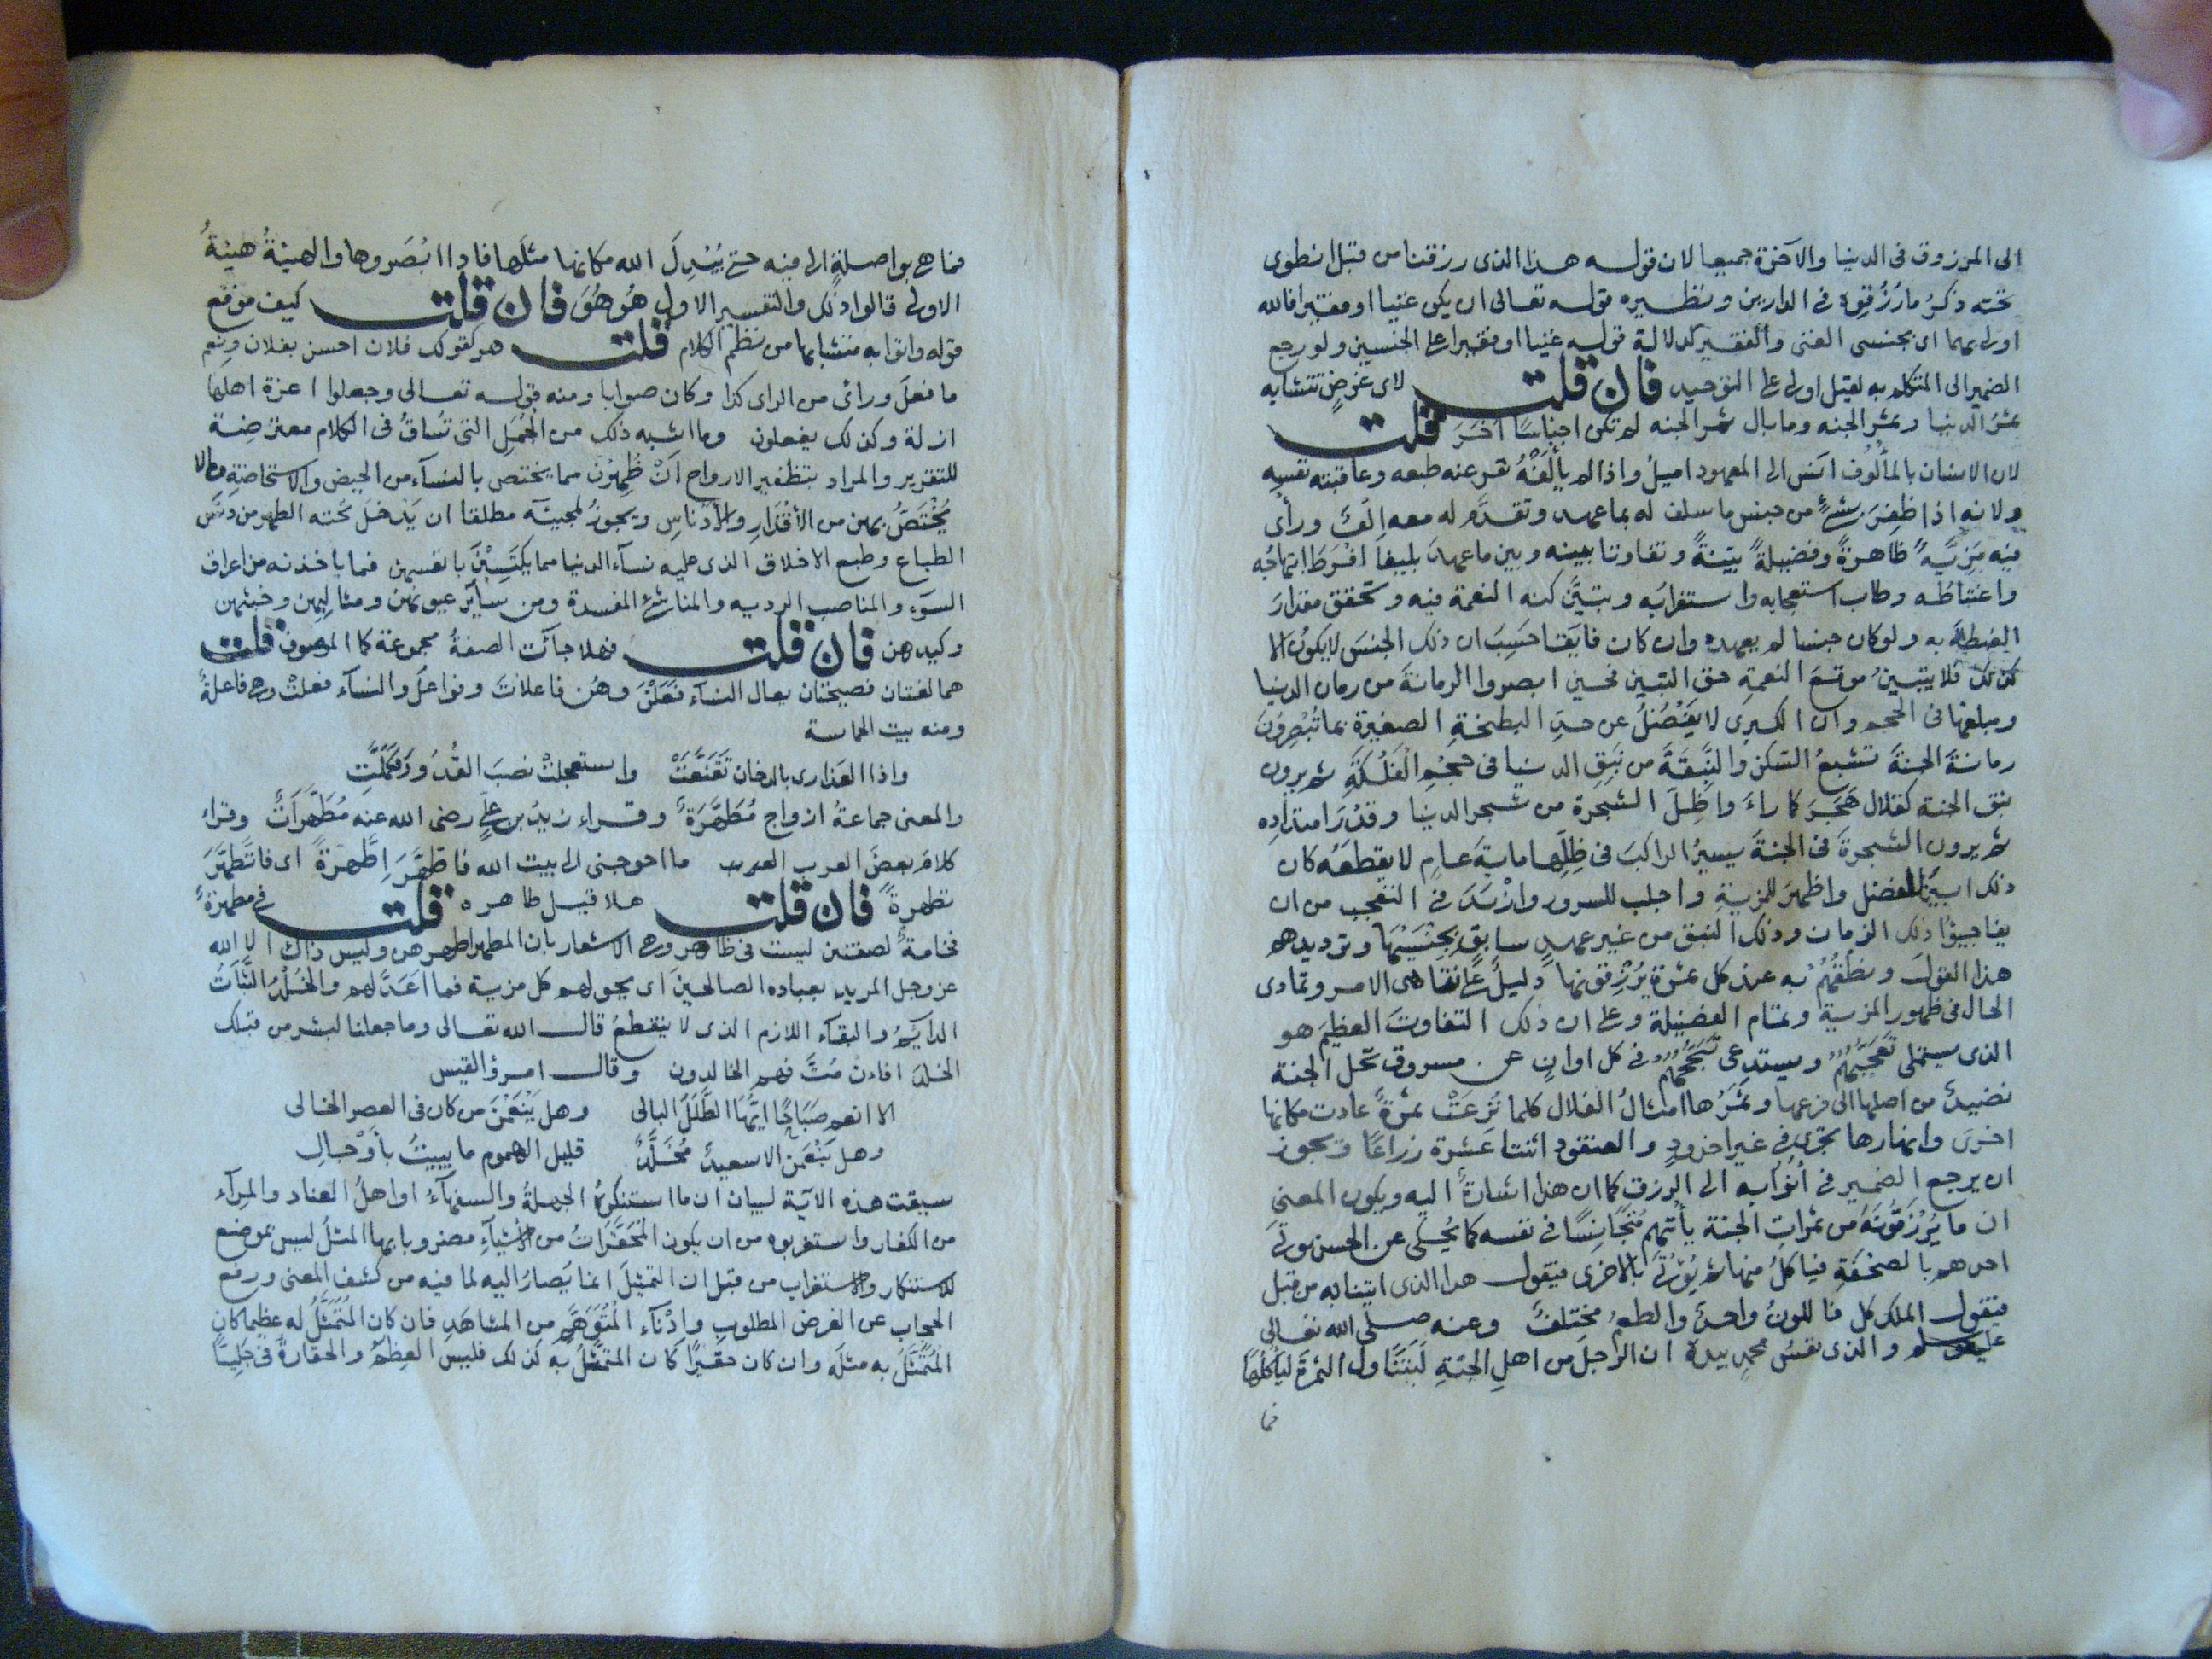 الى المرزوق فى الدنيا والآخرة جميعا لان قوله هذا الذى رزقنا من قبل انطوى
تحته ذكرُ ما رُزِقوه فى الدارين ونظيره قوله تعالى ان يكن غنيا او فقيرا فالله
اولى بهما اى بجنسى الغنى والفقير لدلالة قوله غنيا او فقيرا على الجنسين ولو رجع
الضمير الى المتكلم به لقيل اولى على التوحيد فان قلت لاى غرضٍ تتشابه
ثمرُ الدنيا وثمرُ الجنه وما بال ثمر الجنه لم تكن اجناسًا اُخَرَ قلت
لان الانسان بالمألوف آنس الى المعهود اميلُ واذا لم يألفْهُ نفر عنه طبعه وعافته نفسه
ولانه اذا ظفِرَ بشىءٍ من جنس ما سلف له به عهد وتقدَّم له معه اِلْفٌ ورأى
فيه مَزِيَّةً ظاهرةً وفضيلةً بيّنةً وتفاوتا بينه وبين ما عهدَ بليغا افرَطَ ابتهاجُه
واغتباطُه وطاب استعجابه واستغرابُه وتبيَّن كنه النعمة فيه وتحقق مقدارَ
الغبطة به ولو كان جنسا لم يعهده وان كان فايقا حَسِبَ ان ذلك الجنسَ لا يكونُ الا
كذلك فلا يتبينُ موقعَ النعمة حق التبين فحين ابصروا الرمانةَ من رمان الدنيا
ومبلغها فى الحجم وان الكبرى لا يَفْضُلُ عن حدّ البطيخةِ الصغيرة ثم تُبْصِرون
رمانةَ الجنة تشبعُ السَّكن والنَّبِقَةَ من نَبِقِ الدنيا فى حجمِ الفَلْكَةِ ثم يرون
نبق الجنة كقلال هَجَرَ كما راءَ واظِلَّ الشجرة من شجر الدنيا وقدْرَ امتدادِه
ثم يرون الشجرةَ فى الجنة يسيرُ الراكبَ فى ظلّها ماية عامٍ لا يقطعُه كان
ذلك ابيَنَ للفضل واظهرَ للمزيةِ واجلب للسرور وازْيَدَ فى التعجب من ان
يفاجيؤا ذلك الرمان وذلك النبق من غير عهدٍ سابقٍ بجنسَيْهما وترديدهم
هذا القولَ ونطقُهُم به عند كل ثمرة يُرْزقونها دليلٌ على تناهى الامر وتمادى
الحال فى ظهور المزية وتمام الفضيلة وعلى ان ذلك التفاوتَ العظيمَ هو
الذى يستملى تعجّبَهم ويستدعى تَبَجُّحَهُم فى كل اوانٍ عن مسروق نخل الجنة
نضيدٌ من اصلها الى فرعها وثَمَرُها امثالُ القلال كلما نَزَعَتْ ثمرةً عادت مكانها
اخرىَ وانهارها تجرى فى غير اخدودٍ والعنقود اثنتا عَشَرة زراعًا ويجوز
ان يرجع الضمير فى اُتوا به الى الرزق كما ان هذا اشارةٌ اليه ويكون المعنى
ان ما يُرْزَقُونَهُ من ثمراتِ الجنة يأتيهم مُتجانِسًا فى نفسه كما يُحكى عن الحسن يوتى
احدهم بالصَحْفَةِ فياكلُ منها ثم يُؤتى بالاخرى فيقول هذا الذى اتينا به من قبل
فيقول الملك كل فاللونُ واحدٌ والطعمُ مختلفٌ وعنه صلى الله تعالى
عليه وسلم والذى نفسُ محمدٍ بيده ان الرجل من اهلِ الجنةِ ليَتَناول الثمرَة لياكلها
فما
فما هى بواصلةٍ الى فيه حتى يُبْدِلَ الله مكانها مثلَها فاذا ابْصَروها والهيئةُ هيئةُ
الاولى قالوا ذلك والتفسير الاول هُو هُوَ فان قلت كيف موقع
قوله واتوا به متشابها من نظم الكلام قلت هو كقولك فلان احسن بفلان ونِعم
ما فعلَ ورائ من الراى كذا وكان صوابا ومنه قوله تعالى وجعلوا اعزة اهلها
اذلة وكذلك يفعلون وما اشبه ذلك من الجُمَلِ التى تُساقُ فى الكلام معترضة
للتقرير والمراد بتطهير الازواج اَنْ طُهِرْنَ مما يختص بالنساء من الحيض والاستحاضة وما لا
يَخْتَصُّ بهن من الأقْذارِ والأدْناسِ ويجوزُ لمجيئه مطلقا ان يَدْخُلَ تحته الطهر من دَنَس
الطباع وطبع الاخلاق الذى عليه نسآء الدنيا مما يكتَسِبْنَ بانفسهن فما ياخذنه من اعراق
السَوء والمناصب الرديه والمناشئ المفسدة ومن سآير عيوبهن ومثالبِهن وخبثهن
وكيدهن فان قلت فهلا جآئت الصفةُ مجموعة كما الموصوف قلت
هما لغتان فصيحتان يقال النسآء فَعَلْنَ وهُن فاعلاتٌ وفواعلُ والنسآء فعلتْ وهى فاعلةٌ
ومنه بيت الحماسة
واذا العذارى بالدخان تَقنَّعَتْ واستعجلتْ نصبَ القُدُورَ فَمَلَّتِ
والمعنى جماعةُ ازواج مُطَهَّرَةٌ وقراء زيدُ بن علىٍّ رضى الله عنه مُطَهَّرَاتٌ وفى
كلامِ بعضَ العرب العرب ما احوجنى الى بيت الله فاطَّهَّرَ اِطَّهرَةً اى فاتَطَهَّرَ
تطهرةً فان قلت هلا قيل طاهره قلت فى مطهرةٌ
فخامةٌ لصفتهن ليست فى طاهره وهى الاشعار بان المطهرا طهرهن وليس ذاك الا الله
عز وجل المريد بعباده الصالحين اى يخولهم كل مزية فما اعَدَّ لهم والخُلْدُ الثَّباتُ
الدآيمُ والبقآء اللازم الذى لا ينقطعُ قال الله تعالى وما جعلنا لبشر من قبلك
الخلدَ افاءن مُتَّ فهم الخالدون وقال امرؤ القيس
الا انعم صَبَاحًا ايّها الطَّلَلُ البالى وهل يَنْعَمْنَ من كان فى العصر الخالى
وهل يَنْعَمَن الا سعيدٌ مُخَلَّدٌ قليل الهموم ما يبيتُ بأوْجالِ
سيقت هذه الآية لبيان ان ما استنكرهُ الجهلةُ والسفهآءُ اواهلُ العناد والمِرآء
من الكفار واستغربوه من ان يكون المُحَقَّراتُ من الاشيآءِ مضروبا بها المثلُ ليس بموضع
للاستنكار والاستغراب من قبل ان التمثيلَ انما يَصارُ اليه لما فيه من كشف المعنى ورفع
الحجاب عن الغرض المطلوبِ واِدْنآءِ المُتَوهَّمِ من المشاهَدِ فان كان المُتَمثَّلُ له عظيما كان
المُتمثَّلُ به مثلَه وان كان حقيرًا كان المتمثَّلُ به كذلك فليس العِظَمُ والحقارةُ فى